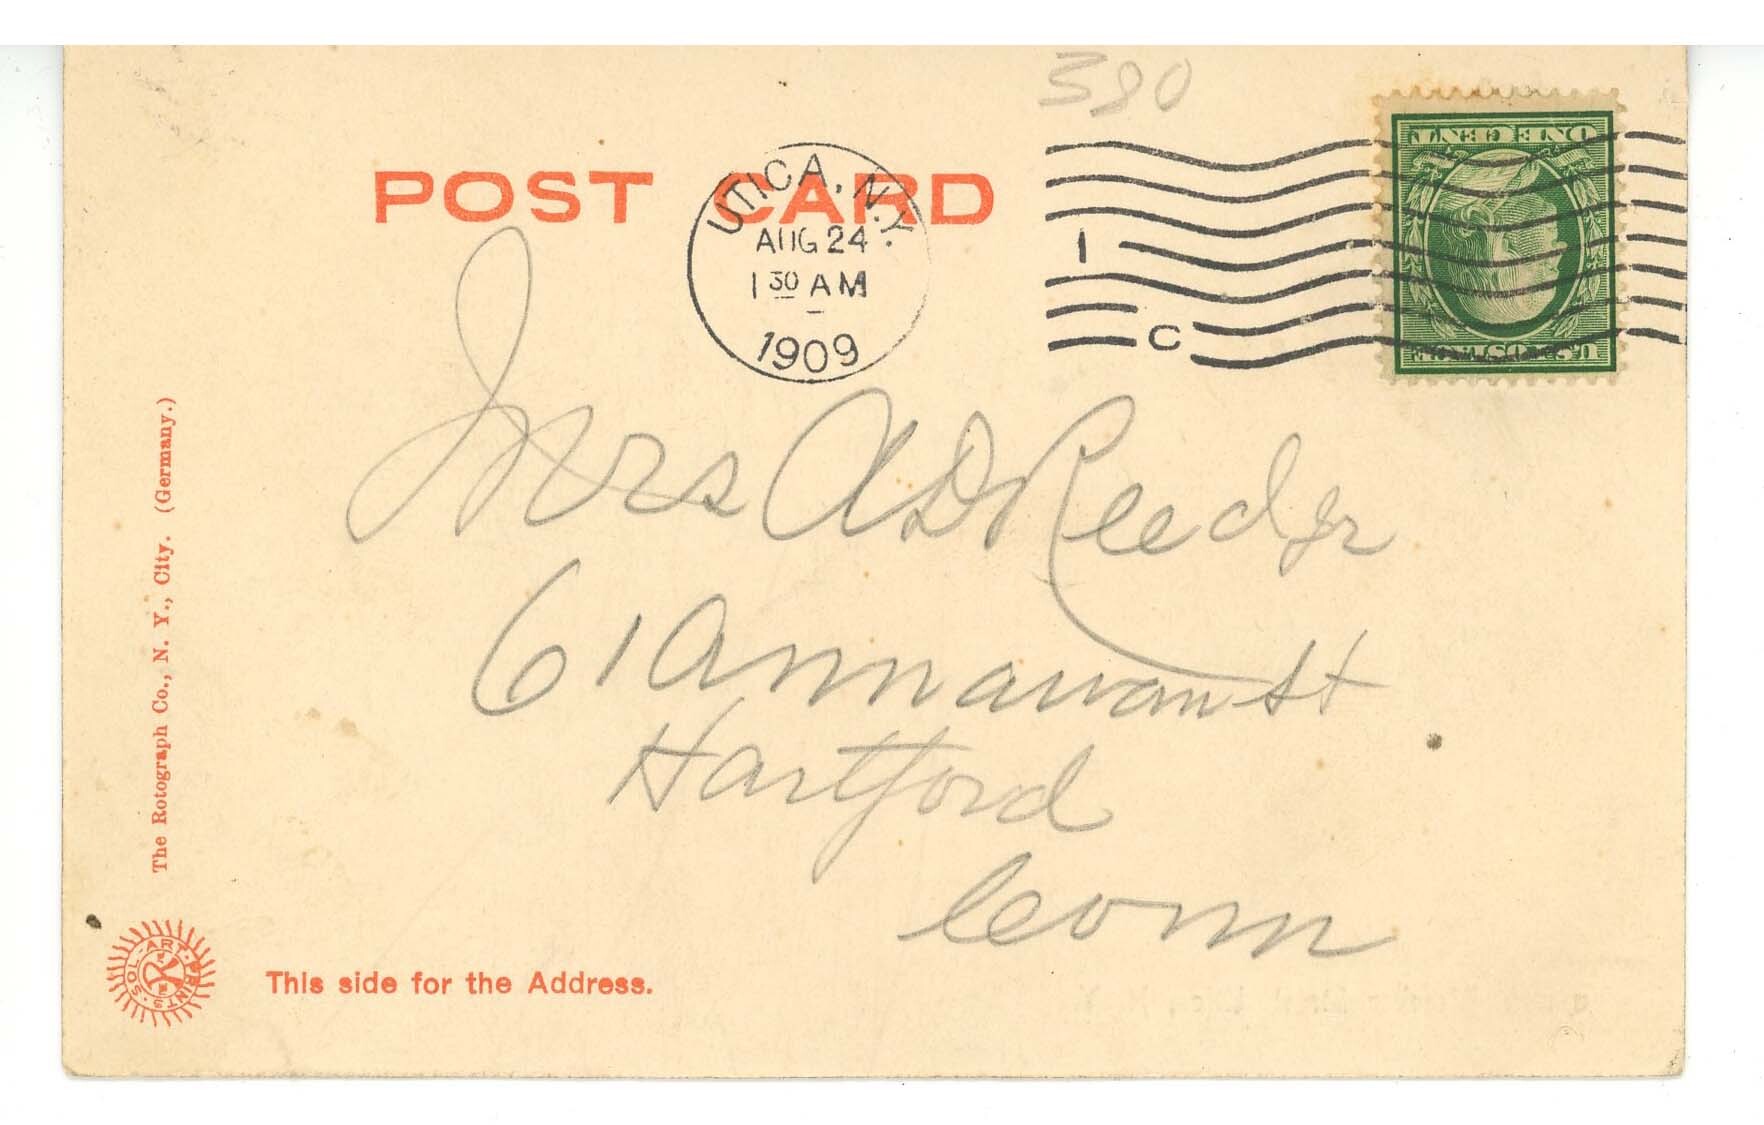 380
POST CARD
UTICA, N.Y.
AUG 24
1 30 AM
1909
1
C
ONE CENT
U.S. POSTAGE
Mrs A D Reed Jr
61 Annawan St
Hartford
Conn
The Rotograph Co., N. Y., City. (Germany.)
SOL-ART PRINTS
This side for the Address.